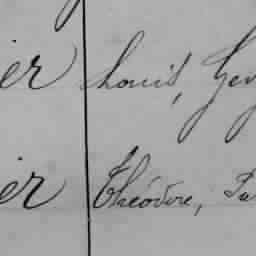 ier Louis, Geo
ier Théodore, Pa